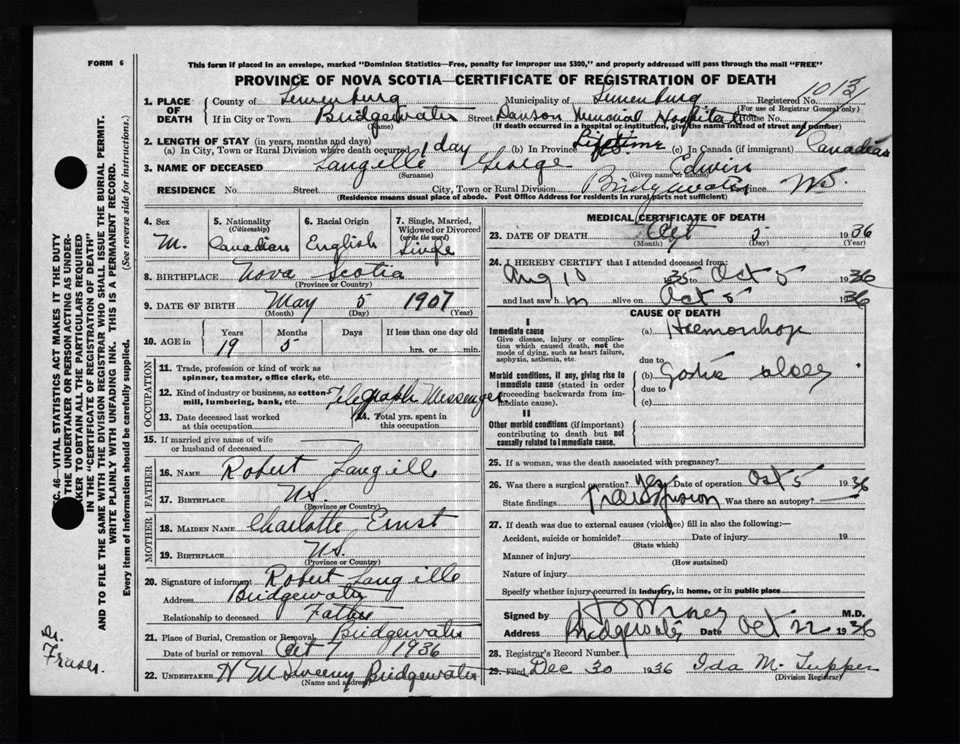 FORM 6
This form if placed in an envelope, marked "Dominion Statistics—Free, penalty for improper use $300," and properly addressed will pass through the mail "FREE"
PROVINCE OF NOVA SCOTIA—CERTIFICATE OF REGISTRATION OF DEATH
1. PLACE OF DEATH County of Lunenburg Municipality of Lunenburg Registered No. 1013
(For use of Registrar General only)
If in City or Town Bridgewater Street Dawson Memorial Hospital House No.
(Name) (If death occurred in a hospital or institution, give the name instead of street and number)
2. LENGTH OF STAY (in years, months and days)
(a) In City, Town or Rural Division where death occurred 1 day (b) In Province Lifetime (c) In Canada (if immigrant) Canadian
3. NAME OF DECEASED Langille George Edwin
(Surname) (Given name or names)
RESIDENCE No Street City, Town or Rural Division Bridgewater Province NS.
(Residence means usual place of abode. Post Office Address for residents in rural parts not sufficient)
4. Sex M.
5. Nationality (Citizenship) Canadian
6. Racial Origin English
7. Single, Married, Widowed or Divorced (write the word) Single
8. BIRTHPLACE Nova Scotia
(Province or Country)
9. DATE OF BIRTH May 5 1907
(Month) (Day) (Year)
10. AGE in Years Months Days If less than one day old
19 5 hrs. or min.
OCCUPATION
11. Trade, profession or kind of work as spinner, teamster, office clerk, etc.
12. Kind of industry or business, as cotton mill, lumbering, bank, etc. Telegraph Messenger
13. Date deceased last worked at this occupation
14. Total yrs. spent in this occupation
15. If married give name of wife or husband of deceased
FATHER
16. NAME Robert Langille
17. BIRTHPLACE NS.
(Province or Country)
MOTHER
18. MAIDEN NAME Charlotte Ernst
19. BIRTHPLACE NS.
(Province or Country)
20. Signature of informant Robert Langille
Address Bridgewater
Relationship to deceased Father
21. Place of Burial, Cremation or Removal Bridgewater
Date of burial or removal Oct 7 1936
22. UNDERTAKER Sweeny Bridgewater
(Name and address)
MEDICAL CERTIFICATE OF DEATH
23. DATE OF DEATH Oct 5 1936
(Month) (Day) (Year)
24. I HEREBY CERTIFY that I attended deceased from:
Aug 10 1935 to Oct 5 1936
and last saw h m alive on Oct 5 1936
CAUSE OF DEATH
I
Immediate cause
Give disease, injury or complication which caused death, not the mode of dying, such as heart failure, asphyxia, asthenia, etc.
(a) Haemorrhage
due to
Morbid conditions, if any, giving rise to immediate cause (stated in order proceeding backwards from immediate cause).
(b) Gastric ulcer
due to
(c)
II
Other morbid conditions (if important) contributing to death but not causally related to immediate cause.
25. If a woman, was the death associated with pregnancy?
26. Was there a surgical operation? Yes Date of operation Oct 5 1936
State findings Transfusion Was there an autopsy?
27. If death was due to external causes (violence) fill in also the following:—
Accident, suicide or homicide? Date of injury 19
(State which)
Manner of injury
(How sustained)
Nature of injury
Specify whether injury occurred in industry, in home, or in public place
Signed by M.D.
Address Bridgewater Date Oct 1936
28. Registrar's Record Number
29. Filed Dec 30 1936 Ida M. Tupper
(Division Registrar)
SEC. 46—VITAL STATISTICS ACT MAKES IT THE DUTY
OF THE UNDERTAKER OR PERSON ACTING AS UNDERTAKER TO OBTAIN ALL THE PARTICULARS REQUIRED
IN THE "CERTIFICATE OF REGISTRATION OF DEATH"
AND TO FILE THE SAME WITH THE DIVISION REGISTRAR WHO SHALL ISSUE THE BURIAL PERMIT.
WRITE PLAINLY WITH UNFADING INK. THIS IS A PERMANENT RECORD.
Every item of information should be carefully supplied. (See reverse side for instructions.)
Dr. Fraser.